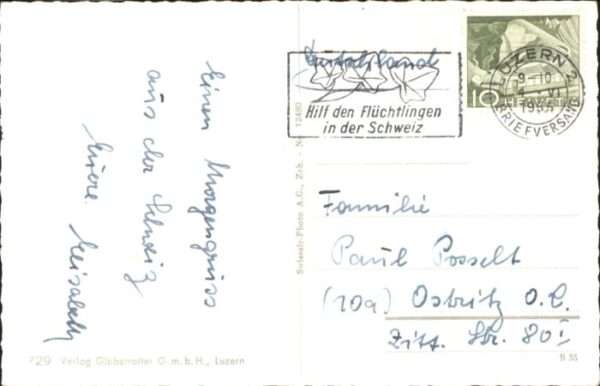 Einen Morgengruss
aus der Schweiz
Eure
729 Verlag Globetrotter G. m. b. H., Luzern
Swissair-Photo A.G., Zch. - No 12480
Deutschland
Hilf den Flüchtlingen
in der Schweiz
LUZERN 2
9-10
VI
BRIEFVERSAND
10
HELVETIA
Familie
Paul Posselt
(10a) Ostritz O. L.
Zitt. Str. 80 I
B 55